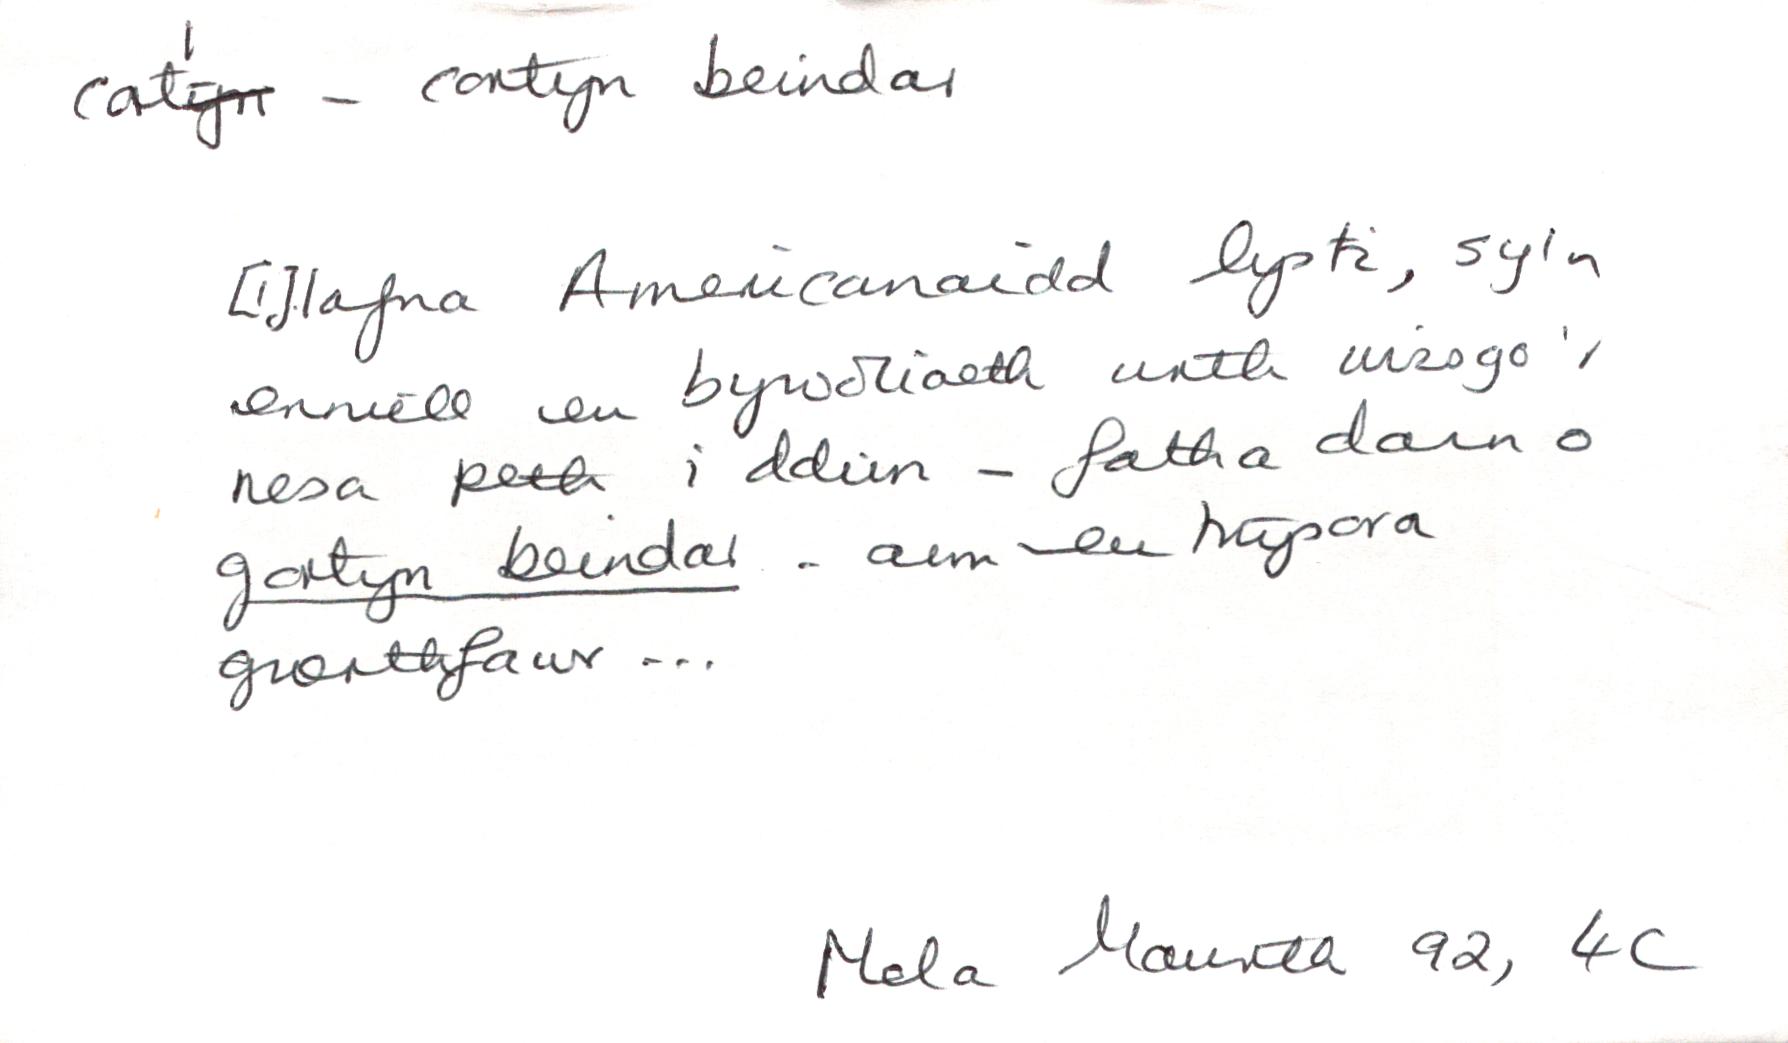 cortyn - cortyn beindar
[l]lafna Americanaidd lysti, sy'n
ennill eu bywoliaeth wrth wisgo'r
nesa peth i ddim - fatha darn o
gortyn beindar - am eu trysora
gwerthfawr ...
Mela Mawrth 92, 4C